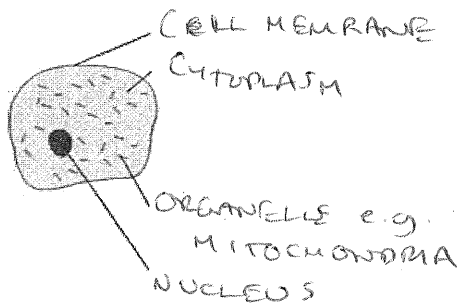 CELL MEMRANE
CYTOPLASM
ORGANELLE e.g.
MITOCHONDRIA
NUCLEUS